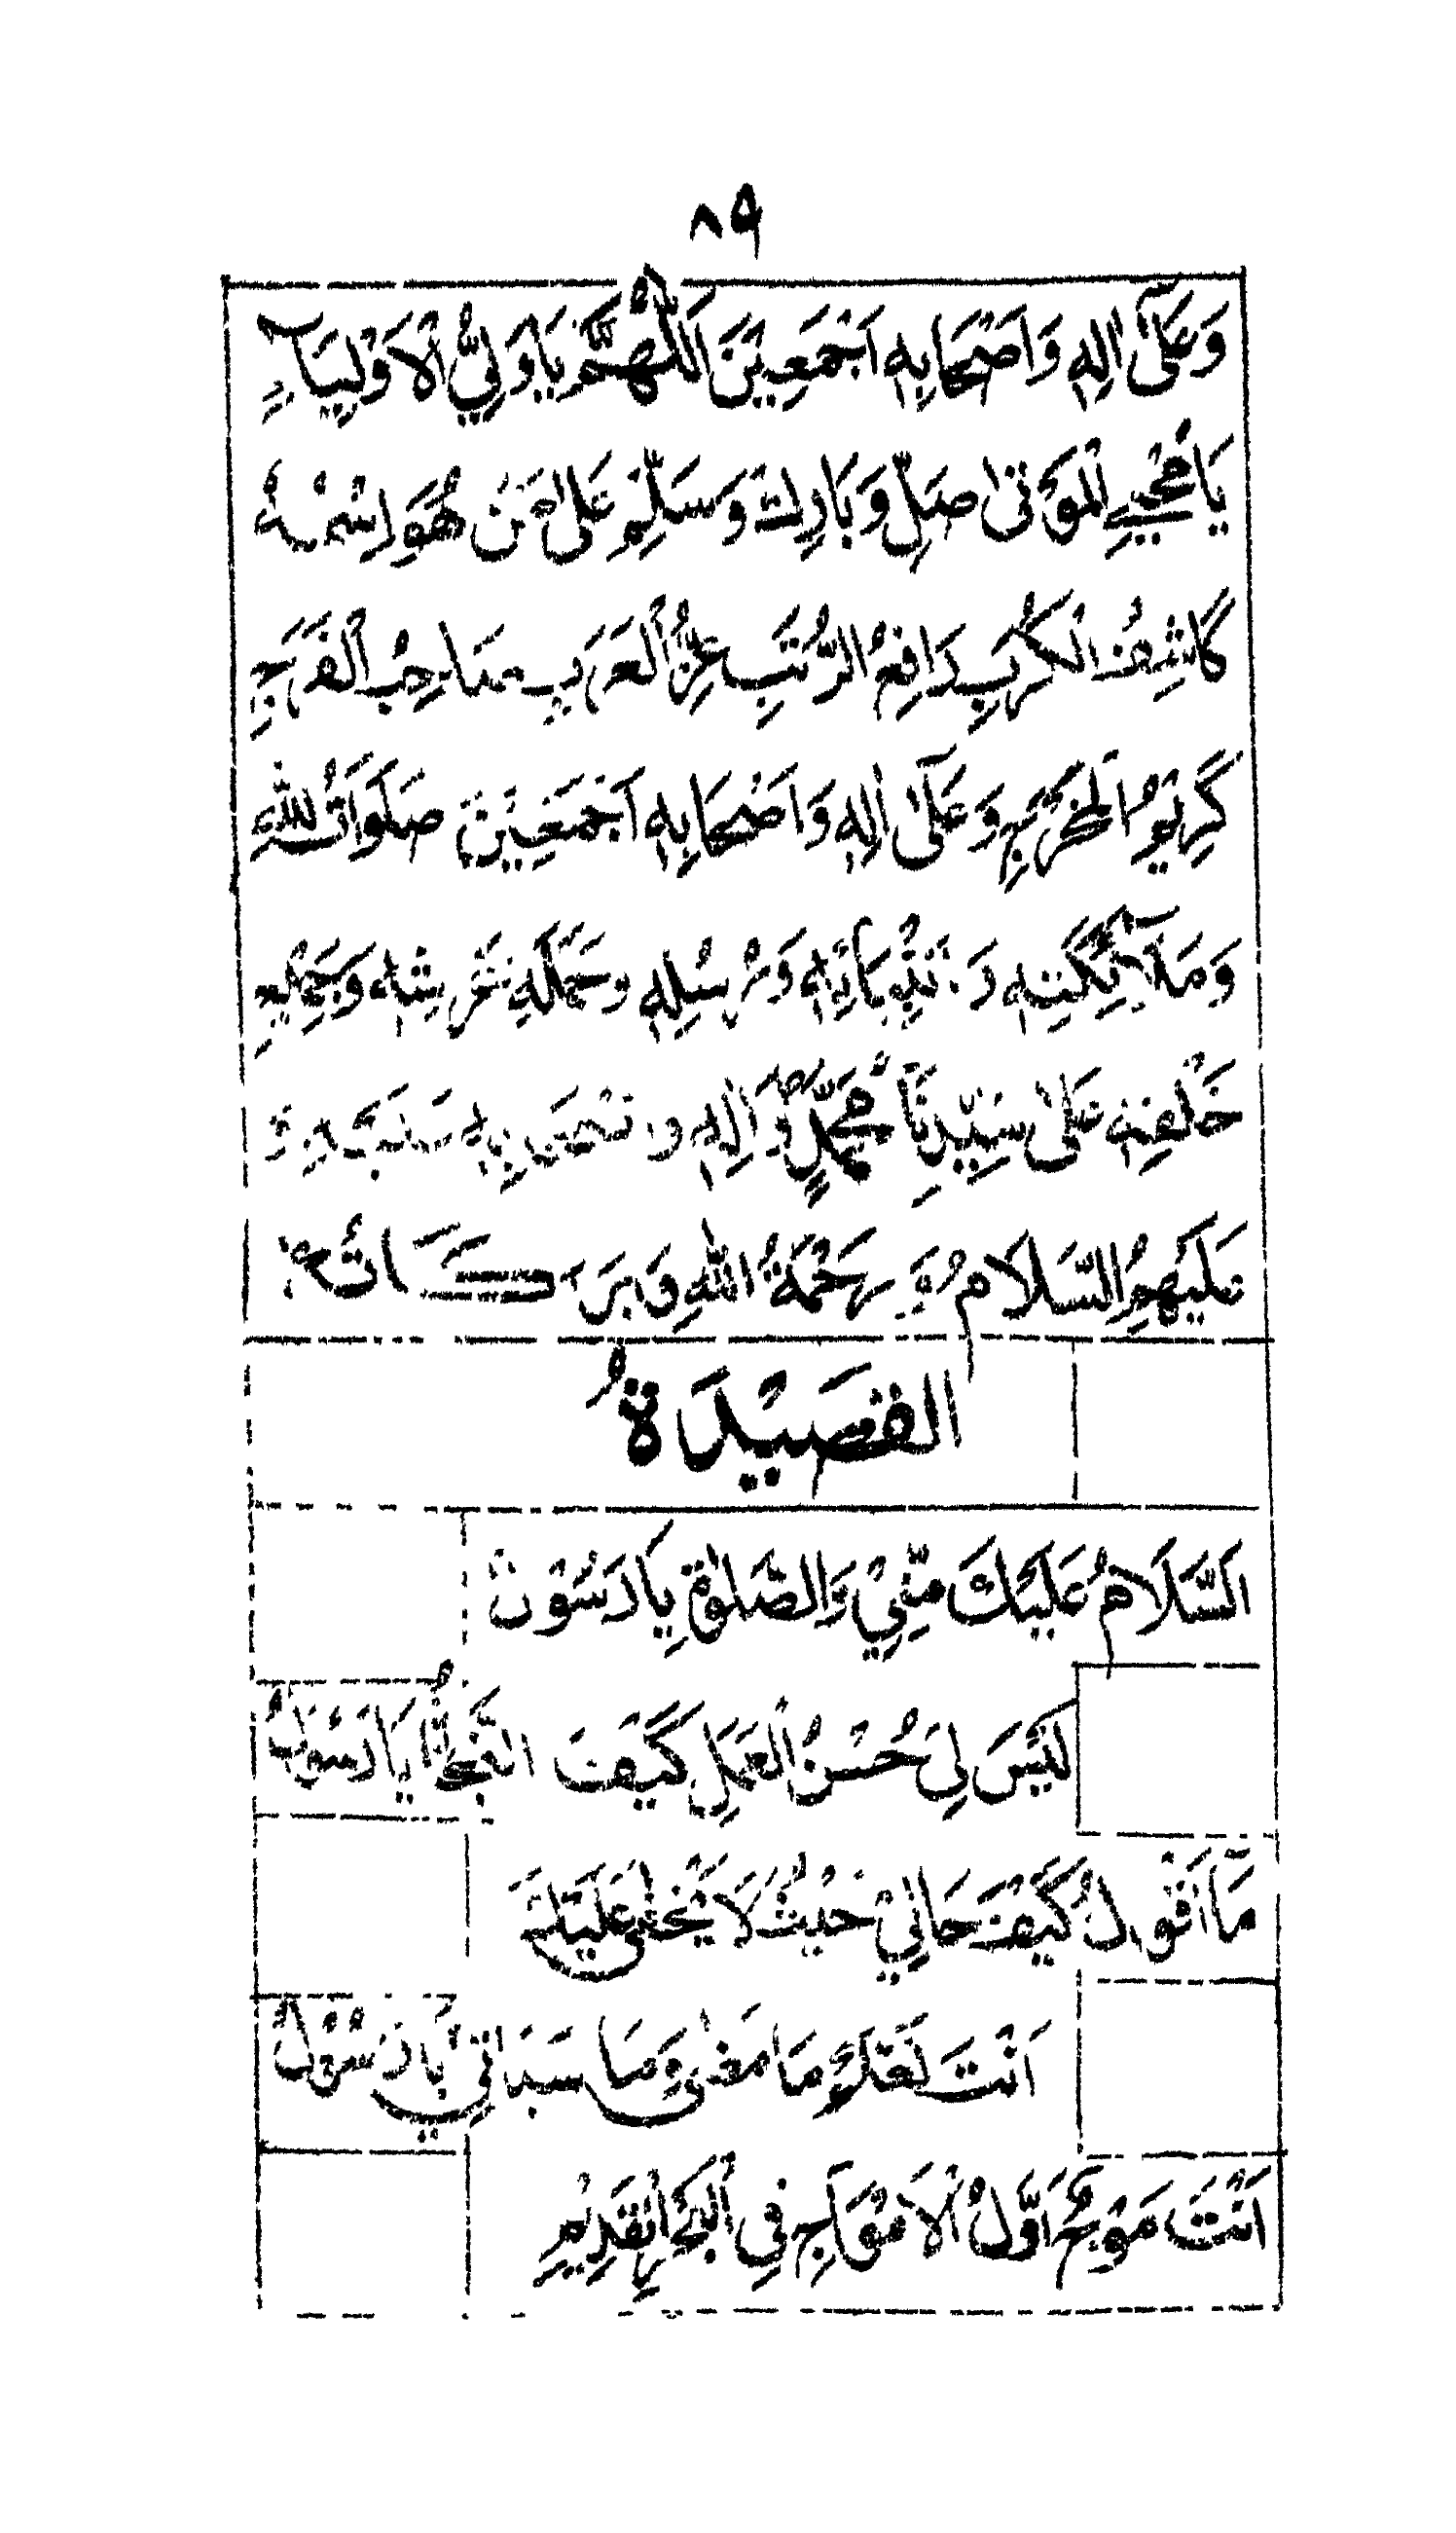 ٨٩
وَعَلٰٓى اٰلِهٖ وَاَصْحَابِهٖ اَجْمَعِيْنَ اَللّٰهُمَّ يَا وَلِيَّ الْاَوْلِيَاۤءِ
يَا مُحْيِيَ الْمَوْتٰى صَلِّ وَبَارِكْ وَسَلِّمْ عَلٰى مَنْ هُوَ اِسْمُهٗ
كَاشِفُ الْكُرَبِ رَافِعُ الرُّتَبِ عِزُّ الْعَرَبِ صَاحِبُ الْفَرَجِ
كَرِيْمُ الْمَخْرَجِ وَعَلٰٓى اٰلِهٖ وَاَصْحَابِهٖ اَجْمَعِيْنَ صَلَوَاتُ اللّٰهِ
وَمَلَاۤئِكَتِهٖ وَ اَنْبِيَائِهٖ وَرُسُلِهٖ وَحَمَلَةِ عَرْشِهٖ وَجَمِيْعِ
خَلْقِهٖ عَلٰى سَيِّدِنَا مُحَمَّدٍ وَّاٰلِهٖ وَ صَحْبِهٖ
عَلَيْهِمُ السَّلَامُ وَ رَحْمَةُ اللّٰهِ وَبَرَكَاتُهٗ
الْقَصِيْدَةُ
اَلسَّلَامُ عَلَيْكَ مِنِّيْ وَالصَّلٰوةُ يَا رَسُوْلْ
لَيْسَ لِيْ حُسْنُ الْعَمَلِ كَيْفَ النَّجَاةُ يَا رَسُوْلْ
مَا اَقُوْلُ كَيْفَ حَالِيْ حَيْثُ لَا يَخْفٰى عَلَيْكَ
اَنْتَ تَعْلَمُ مَا مَضٰى وَمَا سَيَاْتِيْ يَا رَسُوْلْ
اَنْتَ مَوْجٌ اَوَّلُ الْاَمْوَاجِ فِي الْبَحْرِ الْقَدِيْمِ